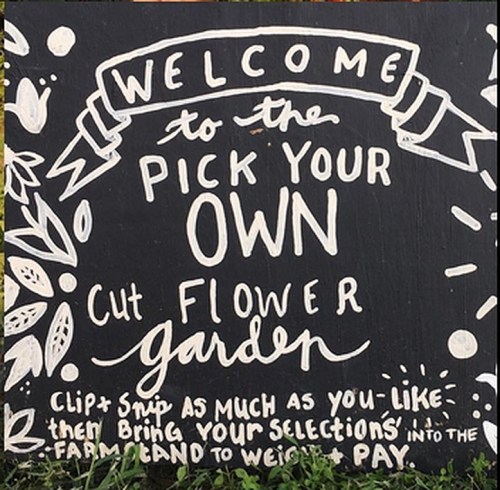 WELCOME
to the
PICK YOUR
OWN
Cut FLOWER
garden
CLIP + Snip AS MUCH AS YOU LIKE
then BRING YOUR SELECTIONS INTO THE
FARMSTAND TO WEIGH + PAY.